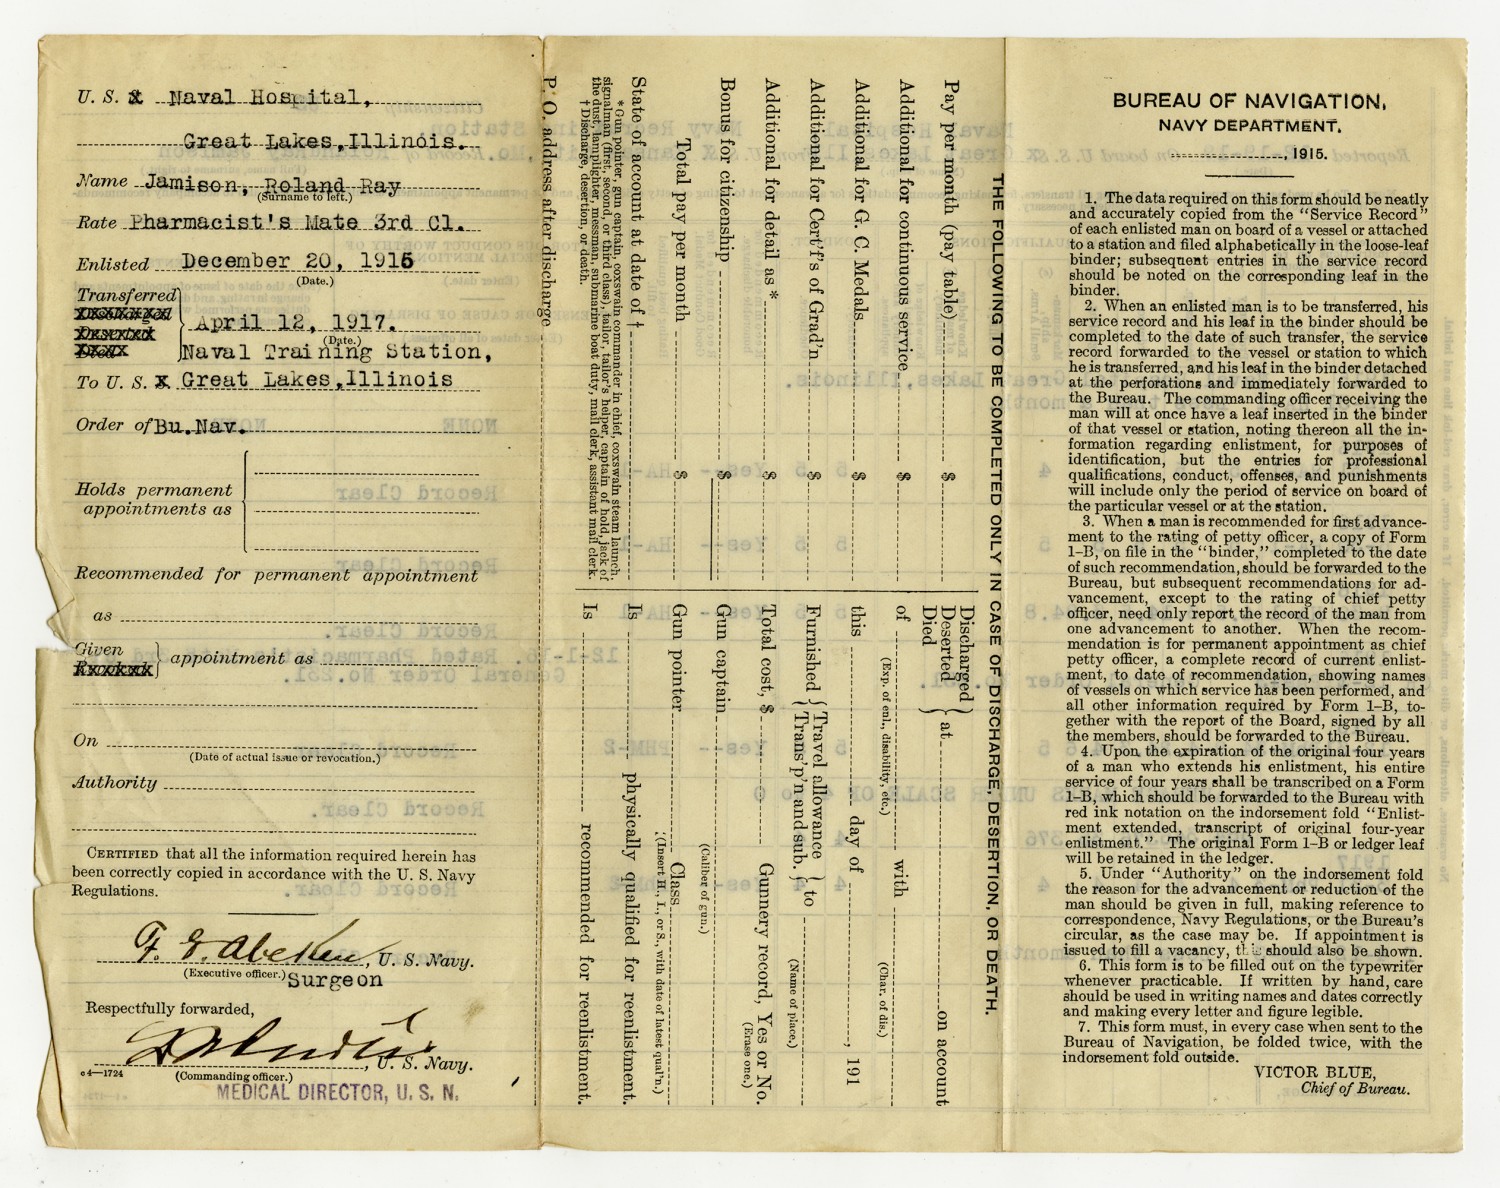 U. S. x Naval Hospital,
Great Lakes,Illinois.
Name Jamison, Roland Ray
(Surname to left.)
Rate Pharmacist's Mate 3rd Cl.
Enlisted December 20, 1915
(Date.)
Transferred
Discharged
Deserted
Died
April 12, 1917.
(Date.)
Naval Training Station,
To U. S. x Great Lakes,Illinois
Order of Bu.Nav.
Holds permanent
appointments as
Recommended for permanent appointment
as
Given
appointment as
On
(Date of actual issue or revocation.)
Authority
CERTIFIED that all the information required herein has
been correctly copied in accordance with the U. S. Navy
Regulations.
F. E. Abeken, U. S. Navy.
(Executive officer.) Surgeon
Respectfully forwarded,
, U. S. Navy.
c4—1724
(Commanding officer.)
MEDICAL DIRECTOR, U. S. N.
THE FOLLOWING TO BE COMPLETED ONLY IN CASE OF DISCHARGE, DESERTION, OR DEATH.
Pay per month (pay table) $
Additional for continuous service $
Additional for G. C. Medals $
Additional for Cert'f's of Grad'n $
Additional for detail as * $
Bonus for citizenship $
Total pay per month $
State of account at date of †
* Gun pointer, gun captain, coxswain commander in chief, coxswain steam launch,
signalman (first, second, or third class), tailor, tailor's helper, captain of hold, jack of
the dust, lamplighter, messman, submarine boat duty, mail clerk, assistant mail clerk.
† Discharge, desertion, or death.
P. O. address after discharge
Discharged
Deserted
Died
at on account
of with
(Exp. of enl., disability, etc.) (Char. of dis.)
this day of , 191
Furnished { Travel allowance
Trans'p'n and sub. } to
(Name of place.)
Total cost, $ Gunnery record, Yes or No.
(Erase one.)
Gun captain
(Caliber of gun.)
Gun pointer Class
(Insert H., I., or S., with date of latest qual'n.)
Is physically qualified for reenlistment.
Is recommended for reenlistment.
BUREAU OF NAVIGATION,
NAVY DEPARTMENT.
, 1915.
1. The data required on this form should be neatly
and accurately copied from the "Service Record"
of each enlisted man on board of a vessel or attached
to a station and filed alphabetically in the loose-leaf
binder; subsequent entries in the service record
should be noted on the corresponding leaf in the
binder.
2. When an enlisted man is to be transferred, his
service record and his leaf in the binder should be
completed to the date of such transfer, the service
record forwarded to the vessel or station to which
he is transferred, and his leaf in the binder detached
at the perforations and immediately forwarded to
the Bureau. The commanding officer receiving the
man will at once have a leaf inserted in the binder
of that vessel or station, noting thereon all the in-
formation regarding enlistment, for purposes of
identification, but the entries for professional
qualifications, conduct, offenses, and punishments
will include only the period of service on board of
the particular vessel or at the station.
3. When a man is recommended for first advance-
ment to the rating of petty officer, a copy of Form
1–B, on file in the "binder," completed to the date
of such recommendation, should be forwarded to the
Bureau, but subsequent recommendations for ad-
vancement, except to the rating of chief petty
officer, need only report the record of the man from
one advancement to another. When the recom-
mendation is for permanent appointment as chief
petty officer, a complete record of current enlist-
ment, to date of recommendation, showing names
of vessels on which service has been performed, and
all other information required by Form 1–B, to-
gether with the report of the Board, signed by all
the members, should be forwarded to the Bureau.
4. Upon the expiration of the original four years
of a man who extends his enlistment, his entire
service of four years shall be transcribed on a Form
1–B, which should be forwarded to the Bureau with
red ink notation on the indorsement fold "Enlist-
ment extended, transcript of original four-year
enlistment." The original Form 1–B or ledger leaf
will be retained in the ledger.
5. Under "Authority" on the indorsement fold
the reason for the advancement or reduction of the
man should be given in full, making reference to
correspondence, Navy Regulations, or the Bureau's
circular, as the case may be. If appointment is
issued to fill a vacancy, this should also be shown.
6. This form is to be filled out on the typewriter
whenever practicable. If written by hand, care
should be used in writing names and dates correctly
and making every letter and figure legible.
7. This form must, in every case when sent to the
Bureau of Navigation, be folded twice, with the
indorsement fold outside.
VICTOR BLUE,
Chief of Bureau.